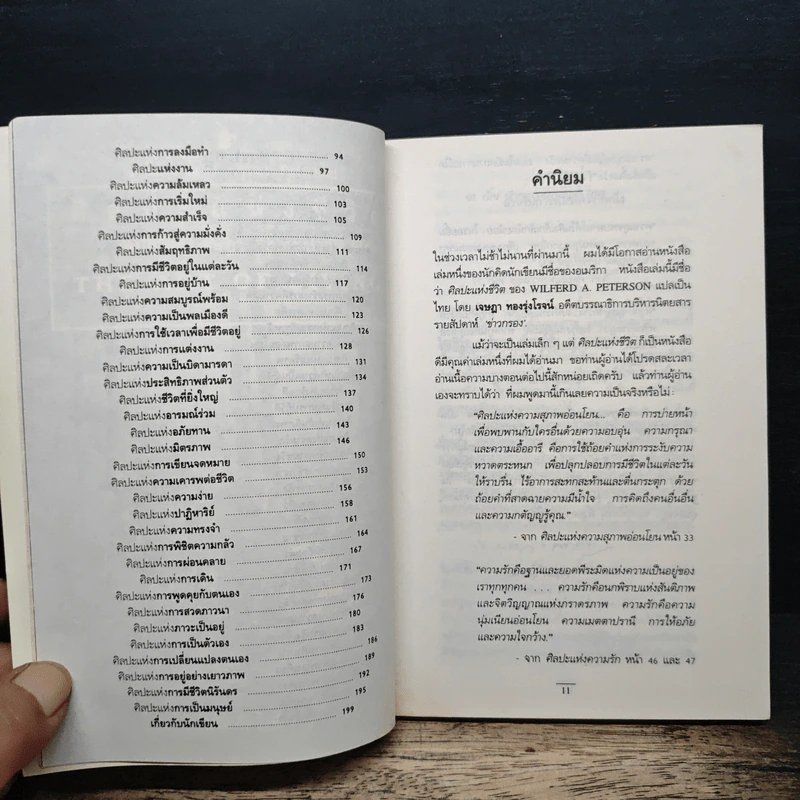 ศิลปะแห่งการลงมือทำ 94
ศิลปะแห่งงาน 97
ศิลปะแห่งความล้มเหลว 100
ศิลปะแห่งการเริ่มใหม่ 103
ศิลปะแห่งความสำเร็จ 105
ศิลปะแห่งการก้าวสู่ความมั่งคั่ง 109
ศิลปะแห่งสัมฤทธิภาพ 111
ศิลปะแห่งการมีชีวิตอยู่ในแต่ละวัน 114
ศิลปะแห่งการอยู่บ้าน 117
ศิลปะแห่งความสมบูรณ์พร้อม 120
ศิลปะแห่งความเป็นพลเมืองดี 123
ศิลปะแห่งการใช้เวลาเพื่อมีชีวิตอยู่ 126
ศิลปะแห่งการแต่งงาน 128
ศิลปะแห่งความเป็นบิดามารดา 131
ศิลปะแห่งประสิทธิภาพส่วนตัว 134
ศิลปะแห่งชีวิตที่ยิ่งใหญ่ 137
ศิลปะแห่งอารมณ์ร่วม 140
ศิลปะแห่งอภัยทาน 143
ศิลปะแห่งมิตรภาพ 146
ศิลปะแห่งการเขียนจดหมาย 150
ศิลปะแห่งความเคารพต่อชีวิต 153
ศิลปะแห่งความง่าย 156
ศิลปะแห่งปาฏิหาริย์ 158
ศิลปะแห่งความทรงจำ 161
ศิลปะแห่งการพิชิตความกลัว 164
ศิลปะแห่งการผ่อนคลาย 167
ศิลปะแห่งการเดิน 171
ศิลปะแห่งการพูดคุยกับตนเอง 173
ศิลปะแห่งการสวดภาวนา 176
ศิลปะแห่งภาวะเป็นอยู่ 180
ศิลปะแห่งการเป็นตัวเอง 183
ศิลปะแห่งการเปลี่ยนแปลงตนเอง 186
ศิลปะแห่งการอยู่อย่างเยาวภาพ 189
ศิลปะแห่งการมีชีวิตนิรันดร 192
ศิลปะแห่งการเป็นมนุษย์ 195
เกี่ยวกับนักเขียน 199
คำนิยม
ในช่วงเวลาไม่ช้าไม่นานที่ผ่านมานี้ ผมได้มีโอกาสอ่านหนังสือ
เล่มหนึ่งของนักคิดนักเขียนมีชื่อของอเมริกา หนังสือเล่มนี้มีชื่อ
ว่า ศิลปะแห่งชีวิต ของ WILFERD A. PETERSON แปลเป็น
ไทย โดย เจษฎา ทองรุ่งโรจน์ อดีตบรรณาธิการบริหารนิตยสาร
รายสัปดาห์ 'ข่าวกรอง'
แม้ว่าจะเป็นเล่มเล็ก ๆ แต่ ศิลปะแห่งชีวิต ก็เป็นหนังสือ
ดีมีคุณค่าเล่มหนึ่งที่ผมได้อ่านมา ขอท่านผู้อ่านได้โปรดสละเวลา
อ่านเนื้อความบางตอนต่อไปนี้สักหน่อยเถิดครับ แล้วท่านผู้อ่าน
เองจะทราบได้ว่า ที่ผมพูดมานี้เกินเลยความจริงหรือไม่:
"ศิลปะแห่งความสุภาพอ่อนโยน... คือ การบ่ายหน้า
เพื่อพบพานกับใครอื่นด้วยความอบอุ่น ความกรุณา
และความเอื้ออารี คือการใช้ถ้อยคำแห่งการระงับความ
หวาดตระหนก เพื่อปลุกปลอบการมีชีวิตในแต่ละวัน
ให้ราบรื่น ไร้อาการสะทกสะท้านและตื่นกระตุก ด้วย
ถ้อยคำที่สาดฉายความมีน้ำใจ การคิดถึงคนอื่นอื่น
และความกตัญญูรู้คุณ."
- จาก ศิลปะแห่งความสุภาพอ่อนโยน หน้า 33
"ความรักคือฐานและยอดพีระมิดแห่งความเป็นอยู่ของ
เราทุกทุกคน . . . ความรักคือนกพิราบแห่งสันติภาพ
และจิตวิญญาณแห่งภราดรภาพ ความรักคือความ
นุ่มเนียนอ่อนโยน ความเมตตาปรานี การให้อภัย
และความใจกว้าง."
- จาก ศิลปะแห่งความรัก หน้า 46 และ 47
11